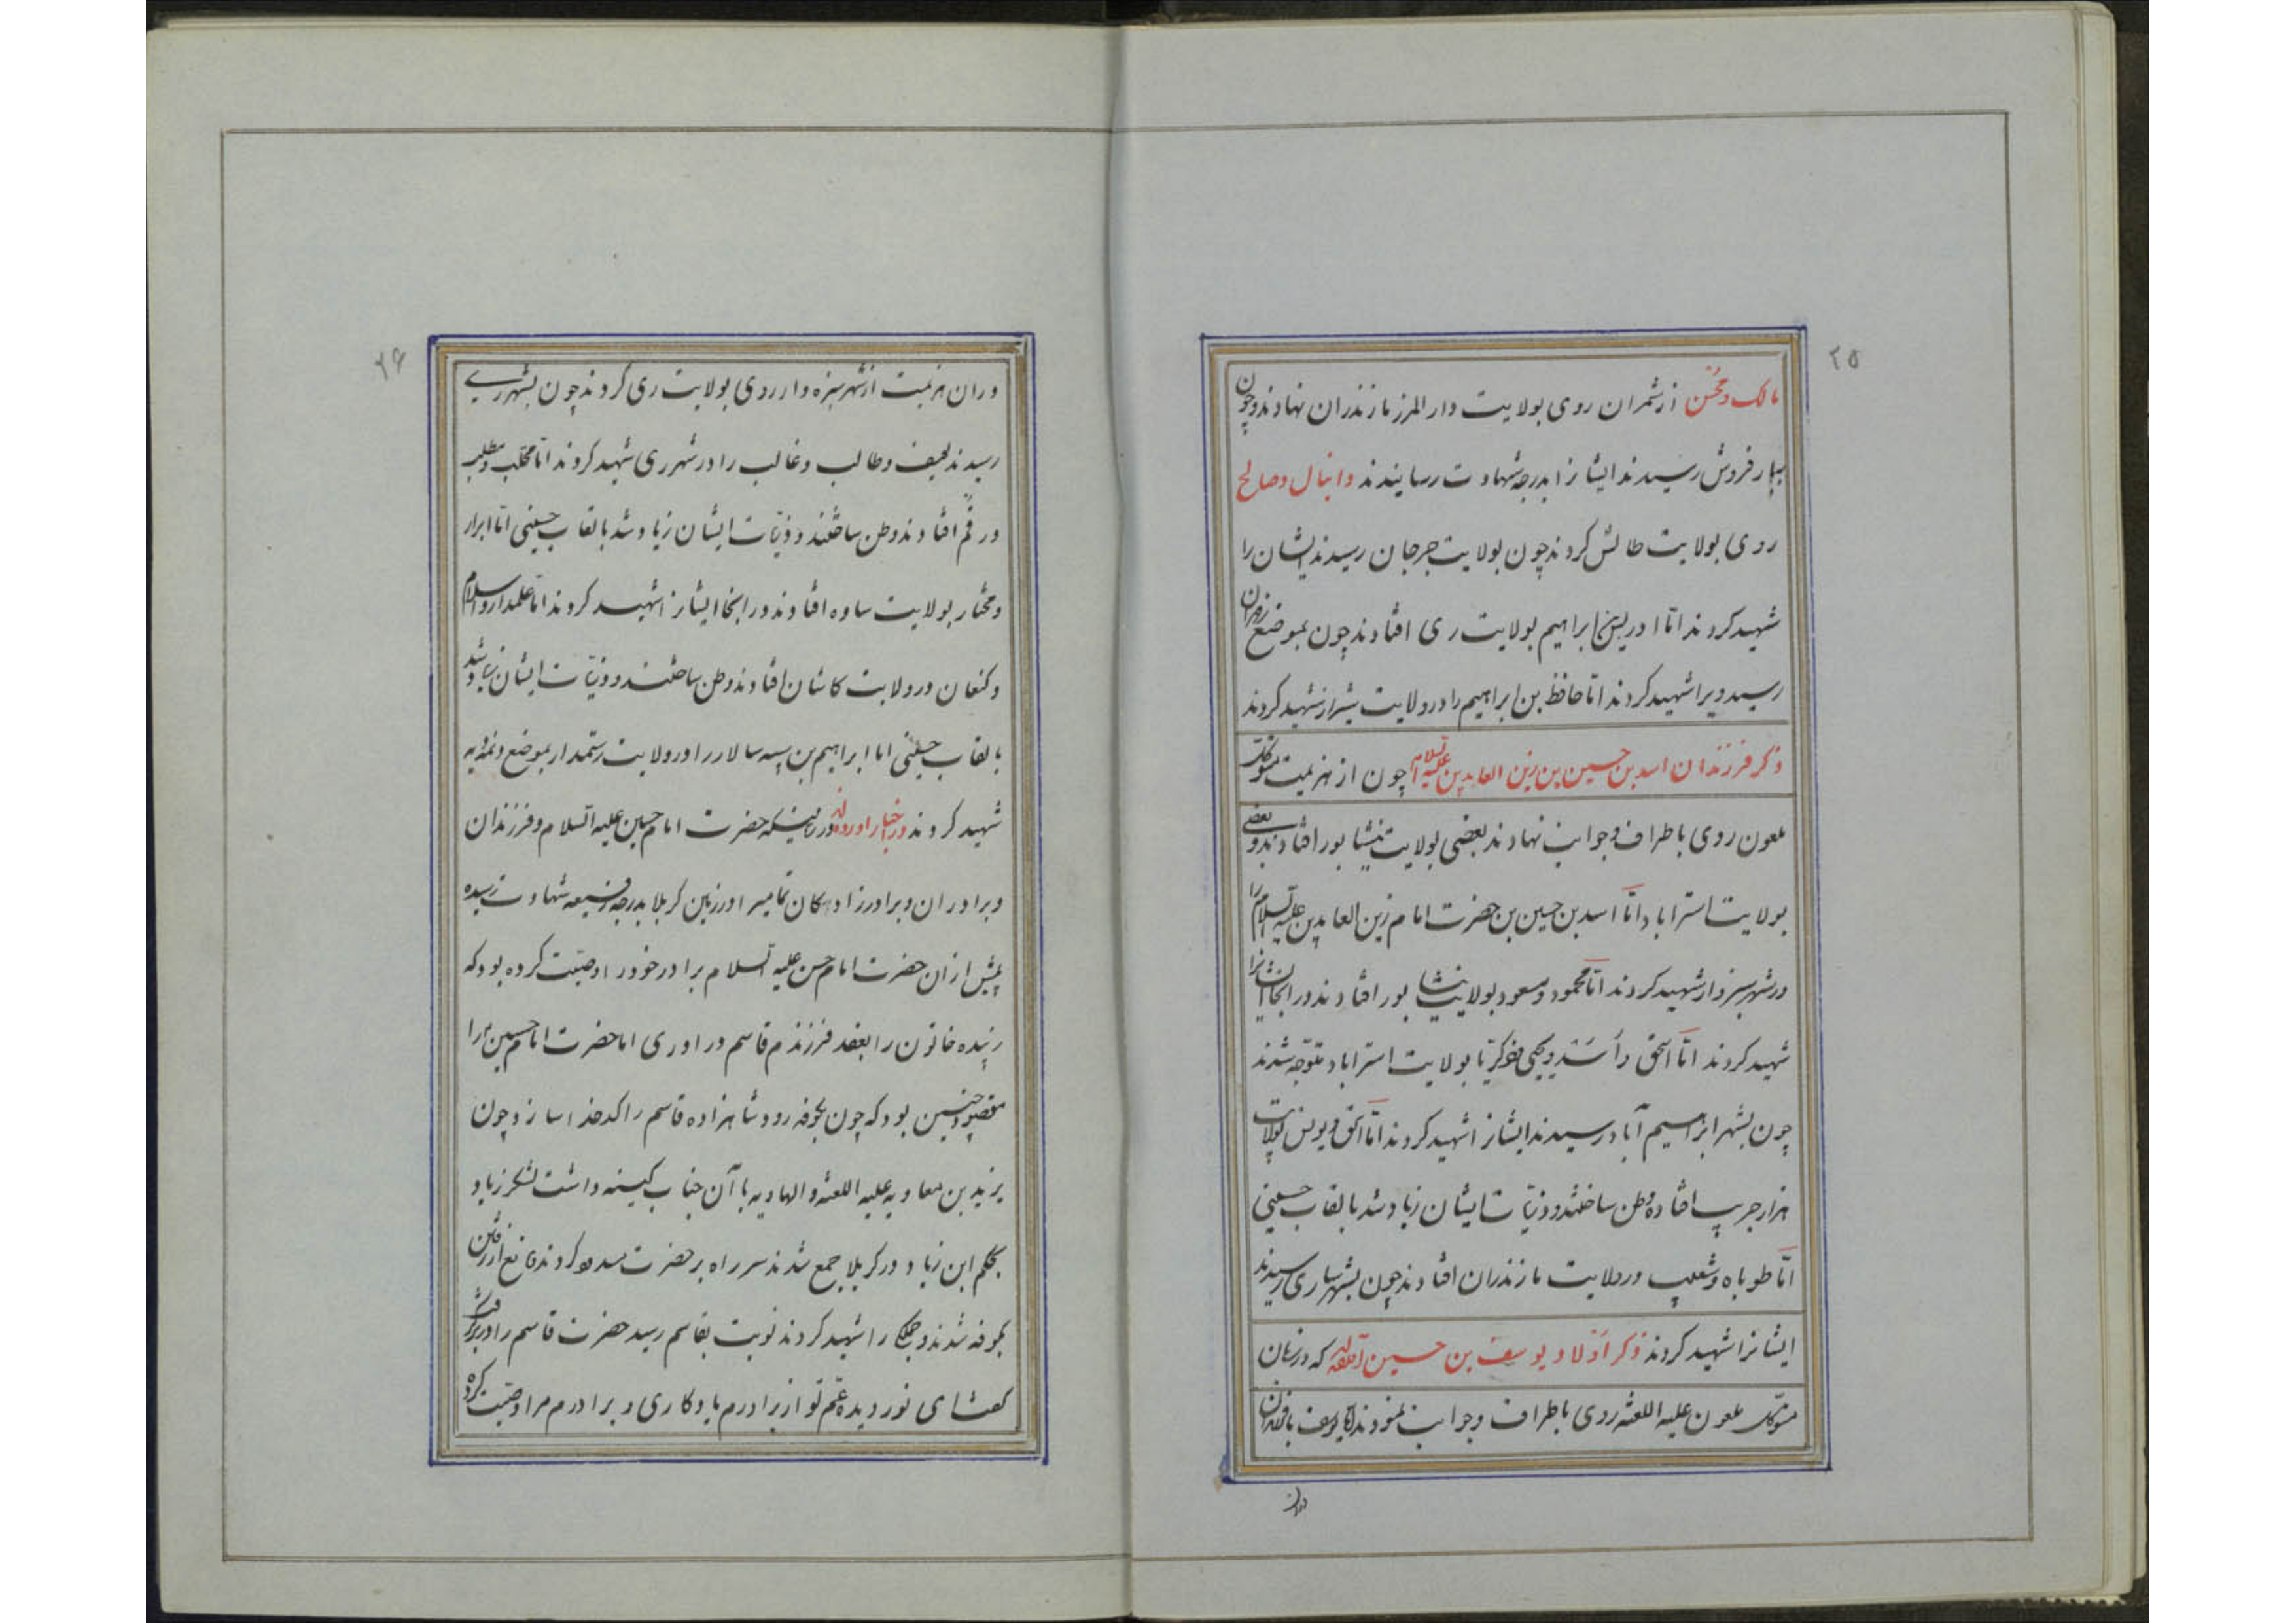 ۲۵
مالک و محسن از شمران روی بولایت دار المرز مازندران نهادند و چون
ببار فروش رسیدند ایشانرا بدرجه شهادت رسانیدند دانیال و صالح
روی بولایت طالش کردند چون بولایت جرجان رسیدند ایشان را
شهید کردند امّا ادریس بن ابراهیم بولایت ری افتادند چون بموضع
رسید ویرا شهید کردند امّا حافظ بن ابراهیم را در ولایت شیراز شهید کردند
ذکر فرزندان اسد بن حسین بن زین العابدین علیه السلام چون از هزیمت متوکل
ملعون روی باطراف و جوانب نهادند بعضی بولایت نیشابور افتادند و بعضی
بولایت استراباد امّا اسد بن حسین بن حضرت امام زین العابدین علیه السلام را
در شهر سبزوار شهید کردند امّا محمود و مسعود بولایت نیشابور افتادند در انجا ایشانرا
شهید کردند امّا اسحق و اسد و یحیی و زکریّا بولایت استراباد متوجّه شدند
چون بشهر ابراهیم آباد رسیدند ایشانرا شهید کردند امّا اسحق و یونس بولایت
هزار جریب افتاده وطن ساختند و ذریّات ایشان زیاد شد بالقاب حسینی
امّا طوباه و شعیب در ولایت مازندران افتادند چون بشهر ساری رسیدند
ایشانرا شهید کردند ذکر اولاد یوسف بن حسین که در زمان
متوکل ملعون علیه اللعنه روی باطراف و جوانب نمودند امّا یوسف با فرزندان
دران
۲۶
دران هزیمت از شهر سبزه وار روی بولایت ری کردند چون بشهر ری
رسیدند لحیف و طالب و غالب را در شهر ری شهید کردند امّا محلب و مطلب
در قم افتادند وطن ساختند و ذریّات ایشان زیاد شد بالقاب حسینی امّا ابرار
و مختار بولایت ساوه افتادند در انجا ایشانرا شهید کردند امّا علمدار و اسلام
و کنعان در ولایت کاشان افتادند وطن ساختند و ذریّات ایشان زیاد شد
بالقاب حسینی اما ابراهیم بن سپه سالار را در ولایت رستمدار بموضع
شهید کردند در اخبار آورده‌اند در زمانیکه حضرت امام حسین علیه السلام و فرزندان
و برادران و برادرزادگان تمامیرا در زمین کربلا بدرجه رفیعه شهادت رسیده
پیش ازان حضرت امام حسن علیه السلام برادر خود را وصیّت کرده بود که
زبیده خاتون را بعقد فرزندم قاسم در اوری اما حضرت امام حسین ع را
مقصود چنین بود که چون بکوفه رود شاهزاده قاسم را کدخدا سازد چون
یزید بن معاویه علیه اللعنه و الهاویه با آن جناب کینه داشت لشکر زیاد
بحکم ابن زیاد در کربلا جمع شدند سر راه بر حضرت مسدود کردند مانع از رفتن
بکوفه شدند و جملکی را شهید کردند نوبت بقاسم رسید حضرت قاسم را در بر گرفت
گفتا ای نور دیده عم تو از برادرم یادکاری و برادرم مرا وصیّت کرده